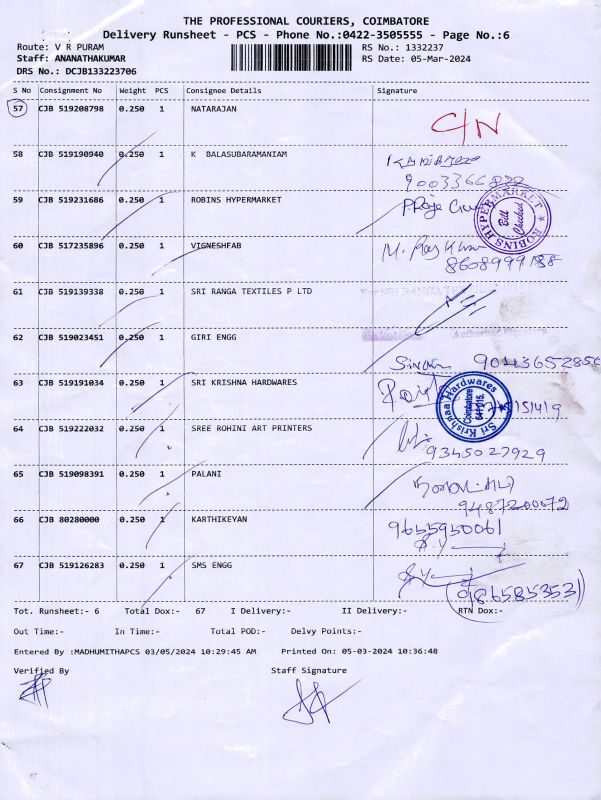 THE PROFESSIONAL COURIERS, COIMBATORE
Delivery Runsheet - PCS - Phone No.:0422-3505555 - Page No.:6
Route: V R PURAM RS No.: 1332237
Staff: ANANATHAKUMAR RS Date: 05-Mar-2024
DRS No.: DCJB133223706
S No Consignment No Weight PCS Consignee Details Signature
57 CJB 519208798 0.250 1 NATARAJAN
C/N
58 CJB 519190940 0.250 1 K BALASUBARAMANIAM
9003366
59 CJB 519231686 0.250 1 ROBINS HYPERMARKET
ROBINS HYPERMARKET Bill Checked
60 CJB 517235896 0.250 1 VIGNESHFAB
8608999188
61 CJB 519139338 0.250 1 SRI RANGA TEXTILES P LTD SRI RANGA
62 CJB 519023451 0.250 1 GIRI ENGG
9043652850
63 CJB 519191034 0.250 1 SRI KRISHNA HARDWARES
Sri Krishnaa Hardwares Coimbatore
64 CJB 519222032 0.250 1 SREE ROHINI ART PRINTERS
9345027929
65 CJB 519098391 0.250 1 PALANI
9487200672
66 CJB 80280000 0.250 1 KARTHIKEYAN
9655950061
67 CJB 519126283 0.250 1 SMS ENGG
986585353
Tot. Runsheet:- 6 Total Dox:- 67 I Delivery:- II Delivery:- RTN Dox:-
Out Time:- In Time:- Total POD:- Delvy Points:-
Entered By :MADHUMITHAPCS 03/05/2024 10:29:45 AM Printed On: 05-03-2024 10:36:48
Verified By Staff Signature